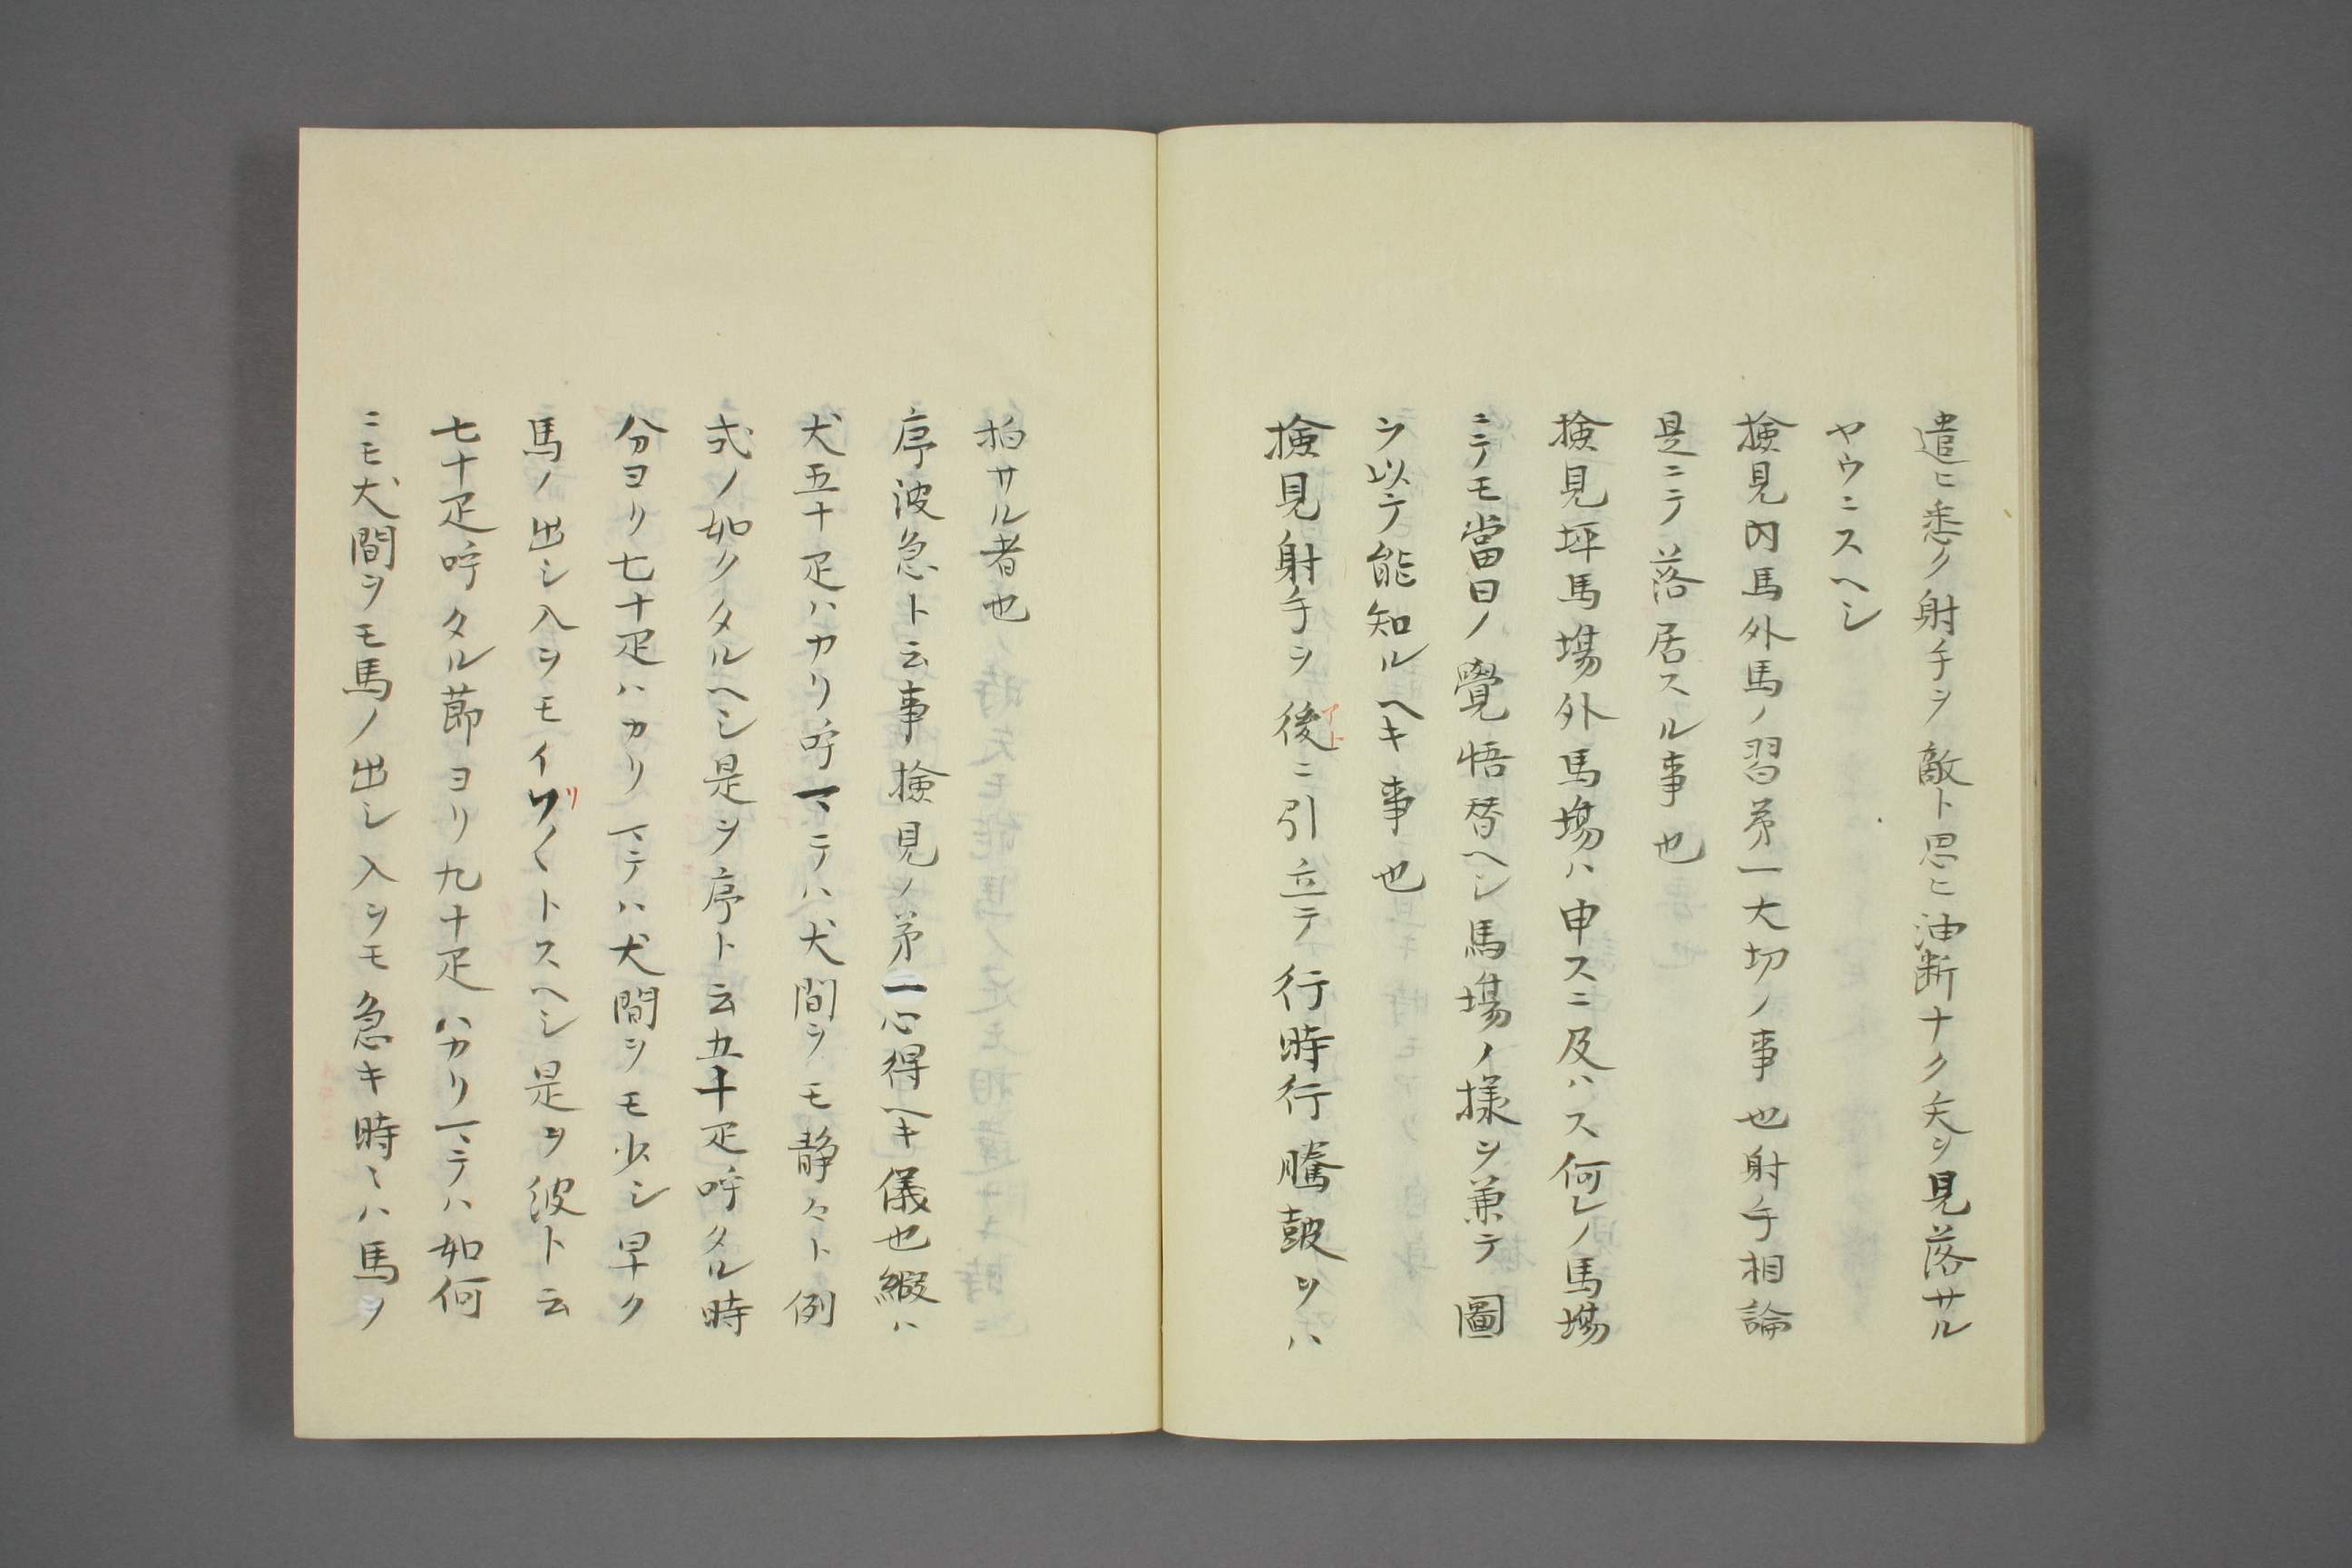 遣ヒ悉ク射手ヲ敵ト思ヒ油断ナク矢ヲ見落サル
ヤウニスヘシ
検見内馬外馬ノ習第一大切ノ事也射手相論
是ニテ落居スル事也
検見坪馬場外馬場ハ申スニ及ハス何レノ馬場
ニテモ當日ノ覺悟替ヘシ馬場ノ様ヲ兼テ圖
ヲ以テ能知ルヘキ事也
検見射手ヲ後アトニ引立テ行時行騰皷ヲハ
拍サル者也
序波急ト云事検見ノ第一心得ヘキ儀也縦ハ
犬五十疋ハカリ呼マテハ犬間ヲモ静々ト例
式ノ如クタルヘシ是ヲ序ト云五十疋呼タル時
分ヨリ七十疋ハカリマテハ犬間ヲモ少シ早ク
馬ノ出シ入ヲモイリ〱トスヘシ是ヲ波ト云
七十疋呼タル節ヨリ九十疋ハカリマテハ如何
ニモ犬間ヲモ馬ノ出シ入ヲモ急キ時〻ハ馬ヲ